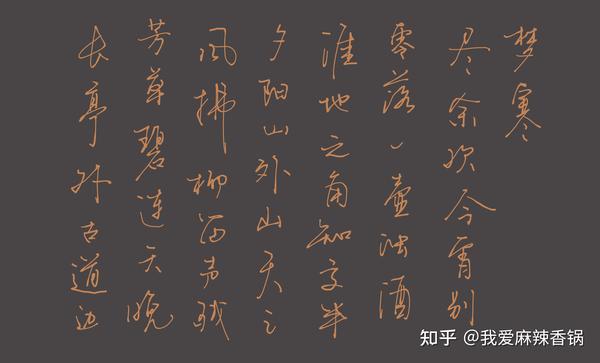 长亭外古道边
芳草碧连天晚
风拂柳笛声残
夕阳山外山天之
涯地之角知交半
零落一壶浊酒
尽余欢今宵别
梦寒
知乎 @我爱麻辣香锅